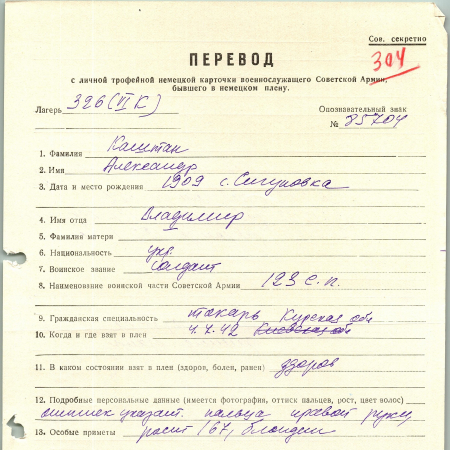 Сов. секретно
304
ПЕРЕВОД
с личной трофейной немецкой карточки военнослужащего Советской Армии,
бывшего в немецком плену.
Лагерь 326 (VI К)
Опознавательный знак
№ 85704
1. Фамилия Каштан
2. Имя Александр
3. Дата и место рождения 1909 с. Сигуновка
4. Имя отца Владимир
5. Фамилия матери
6. Национальность укр.
7. Воинское звание солдат
8. Наименование воинской части Советской Армии 123 с.п.
9. Гражданская специальность токарь Курская обл
10. Когда и где взят в плен 4.7.42 Киевская обл
11. В каком состоянии взят в плен (здоров, болен, ранен) здоров
12. Подробные персональные данные (имеется фотография, оттиск пальцев, рост, цвет волос)
оттиск указат. пальца правой руки,
13. Особые приметы рост 167, блондин